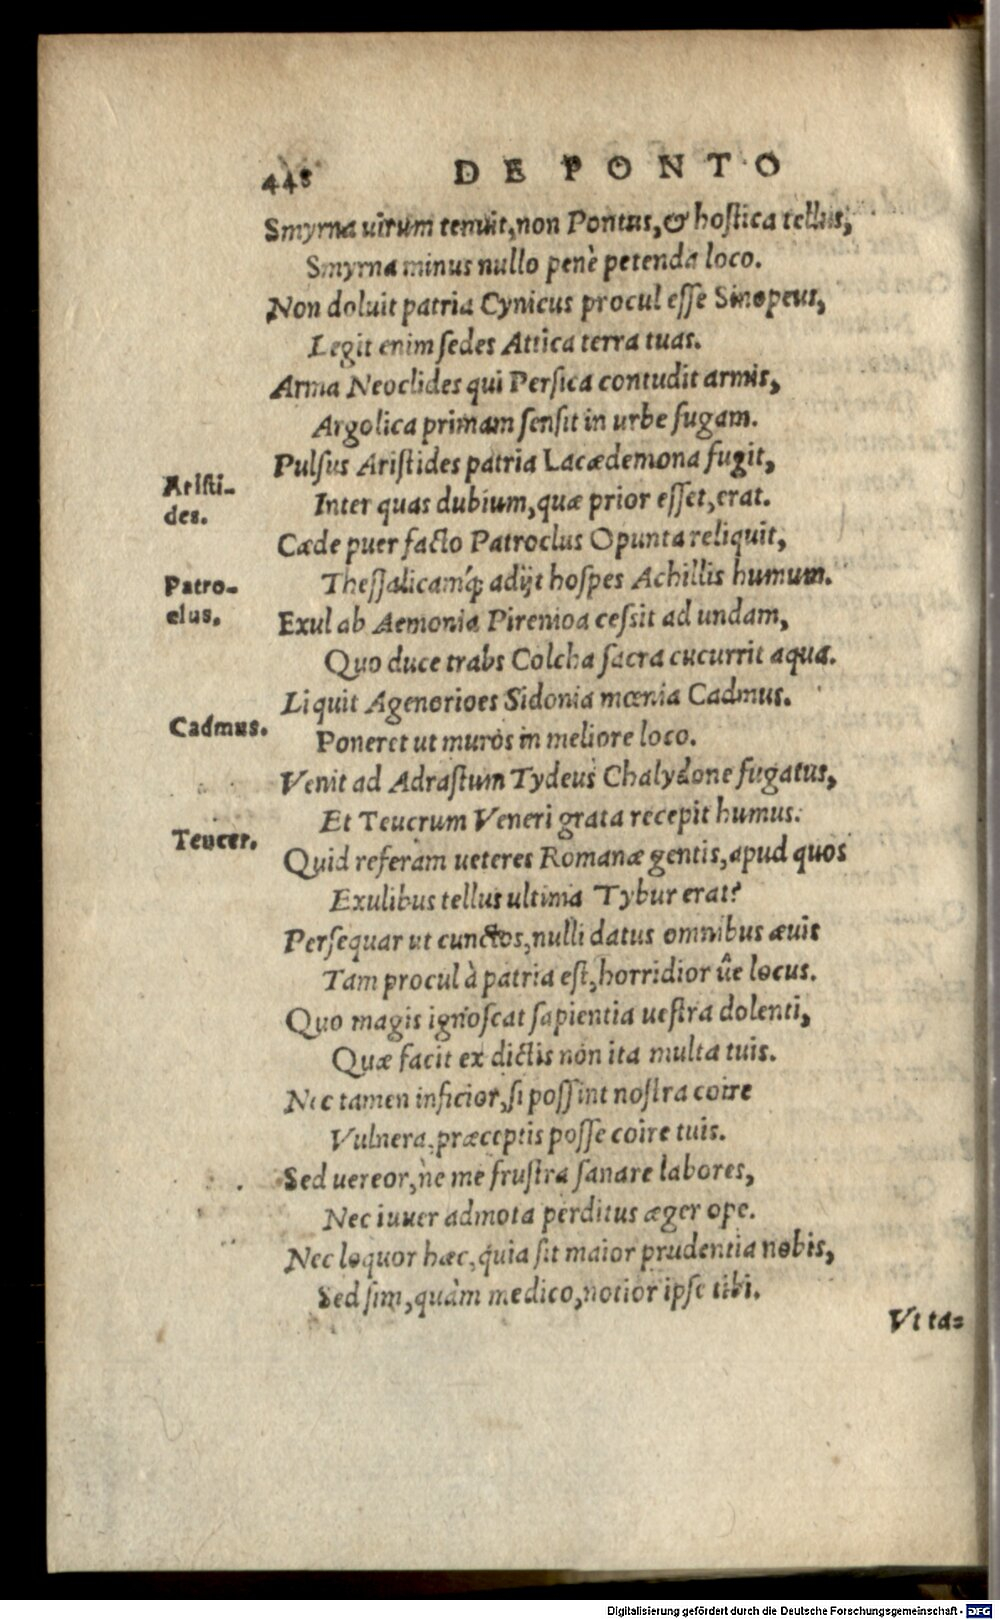 448 DE PONTO
Smyrna uirum tenuit, non Pontus, & hostica tellus,
Smyrna minus nullo penè petenda loco.
Non doluit patria Cynicus procul esse Sinopeus,
Legit enim sedes Attica terra tuas.
Arma Neoclides qui Persica contudit armis,
Argolica primam sensit in urbe fugam.
Pulsus Aristides patria Lacædemona fugit,
Aristi-
des.
Inter quas dubium, quæ prior esset, erat.
Cæde puer facto Patroclus Opunta reliquit,
Patro-
clus.
Thessalicamq́; adijt hospes Achillis humum.
Exul ab Aemonia Pirenioa cessit ad undam,
Quo duce trabs Colcha sacra cucurrit aqua.
Liquit Agenorioes Sidonia mœnia Cadmus.
Cadmus.
Poneret ut muros in meliore loco.
Venit ad Adrastum Tydeus Chalydone fugatus,
Et Teucrum Veneri grata recepit humus.
Teucer.
Quid referam ueteres Romanæ gentis, apud quos
Exulibus tellus ultima Tybur erat?
Persequar ut cunctos, nulli datus omnibus æuis
Tam procul à patria est, horridior ûe locus.
Quo magis ignoscat sapientia uestra dolenti,
Quæ facit ex dictis non ita multa tuis.
Nec tamen inficior, si possint nostra coire
Vulnera, præceptis posse coire tuis.
Sed uereor, ne me frustra sanare labores,
Nec iuuer admota perditus æger ope.
Nec loquor hæc, quia sit maior prudentia nobis,
Sed sim, quàm medico, notior ipse tibi.
Vt ta=
Digitalisierung gefördert durch die Deutsche Forschungsgemeinschaft - DFG